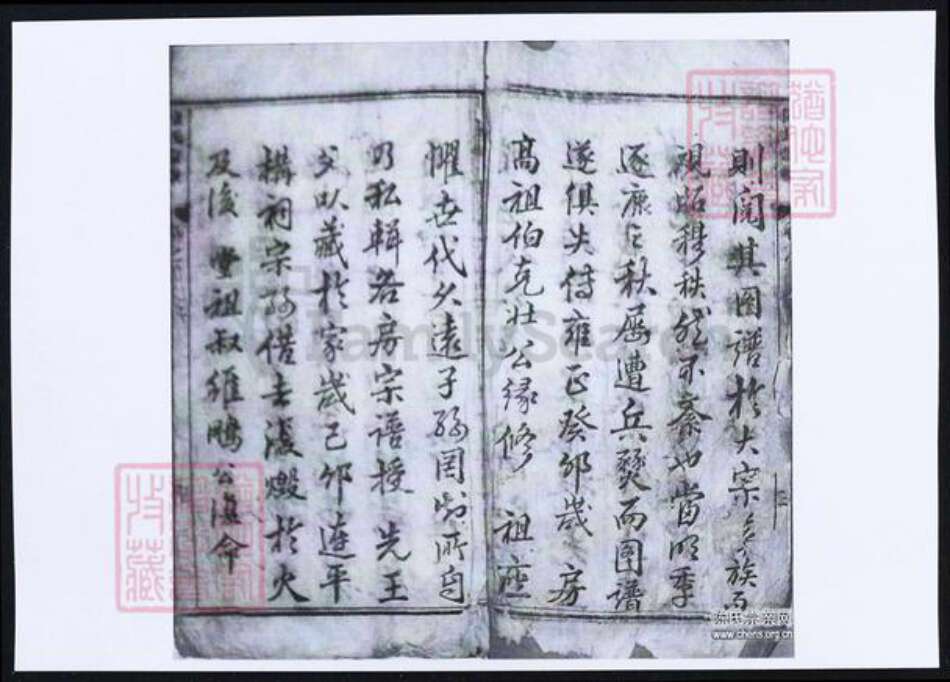 則閱其圖譜於大宗
視昭穆秩然不紊也當明季
逐康之秋屢遭兵燹而圖譜
遂俱失傳雍正癸卯歲 房
高祖伯克壯公緣修 祖塋
懼世代久遠子孫罔知所自
乃私輯各房宗譜授 先王
父以藏於家歲己卯連平
構祠宗孫借去湲燬於火
及後 堂祖叔維鵬公滇命
FamilySearch
陳氏宗親网
www.chens.org.cn
收藏